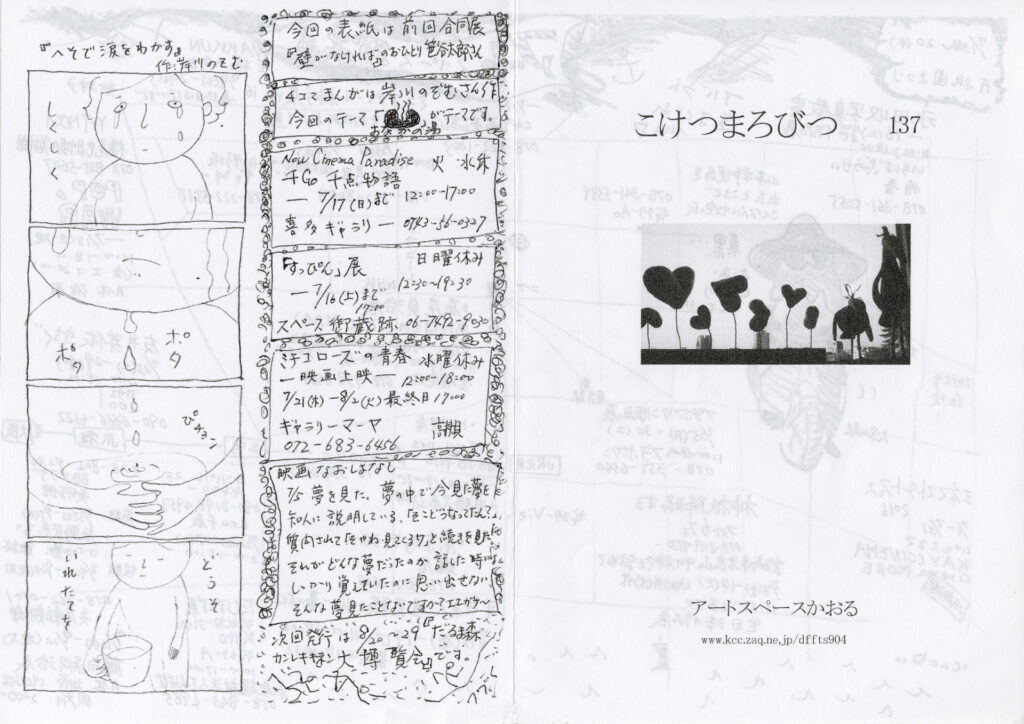 『へそで涙をわかす』
作:岸川のぞむ
しくしく
ポタ
ポタ
ぴチョン
どうぞ
今回の表紙は前回合同展
『壁がなければ』のおひとり
4コマまんがは岸川のぞむさん作
今回のテーマ「
」がテーマです。
おなかの湯
New Cinema Paradise 火・水休
千Go千点物語
― 7/17(日)まで 12:00-17:00
喜多ギャラリー 0743-56-0327
「すっぴん」展 日曜休み
― 7/16(土)まで 12:30~19:30
17:00
スペース御蔵跡 06-7492-9030
ミチコローズの青春 水曜休み
―映画上映― 12:00-18:00
7/21(木)-8/2(火)最終日17:00
ギャラリーマーヤ 高槻
072-683-6456
映画なおしはなし
7/5 夢を見た。夢の中で今見た夢を
知人に説明している。「そこどうなってたん?」
質問されて「そやね見てくるワ」と続きを見た
それがどんな夢だったのか 話した時は
しっかり覚えていたのに思い出せない
そんな夢見たことないですか?
次回発行は8/20~29『だるま森
大博覧会』です。
こけつまろびつ 137
アートスペースかおる
www.kcc.zaq.ne.jp/dffts904